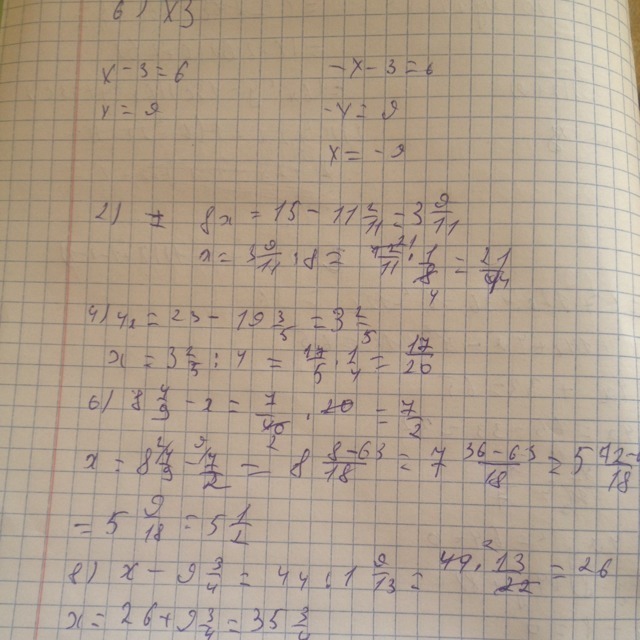 6) X3
x - 3 = 6    -x - 3 = 6
x = 9    -x = 9
x = -9
2) 8x = 15 - 11 2/11 = 3 9/11
x = 3 9/11 : 8 = 42/11 · 1/8 = 21/44
4) 4x = 23 - 19 3/5 = 3 2/5
x = 3 2/5 : 4 = 17/5 · 1/4 = 17/20
6) 8 4/9 - x = 7/40 · 20 = 7/2
x = 8 4/9 - 7/2 = 8 8-63/18 = 7 36-63/18 = 5
= 5 9/18 = 5 1/2
8) x - 9 3/4 = 44 : 1 9/13 = 44 · 13/22 = 26
x = 26 + 9 3/4 = 35 3/4